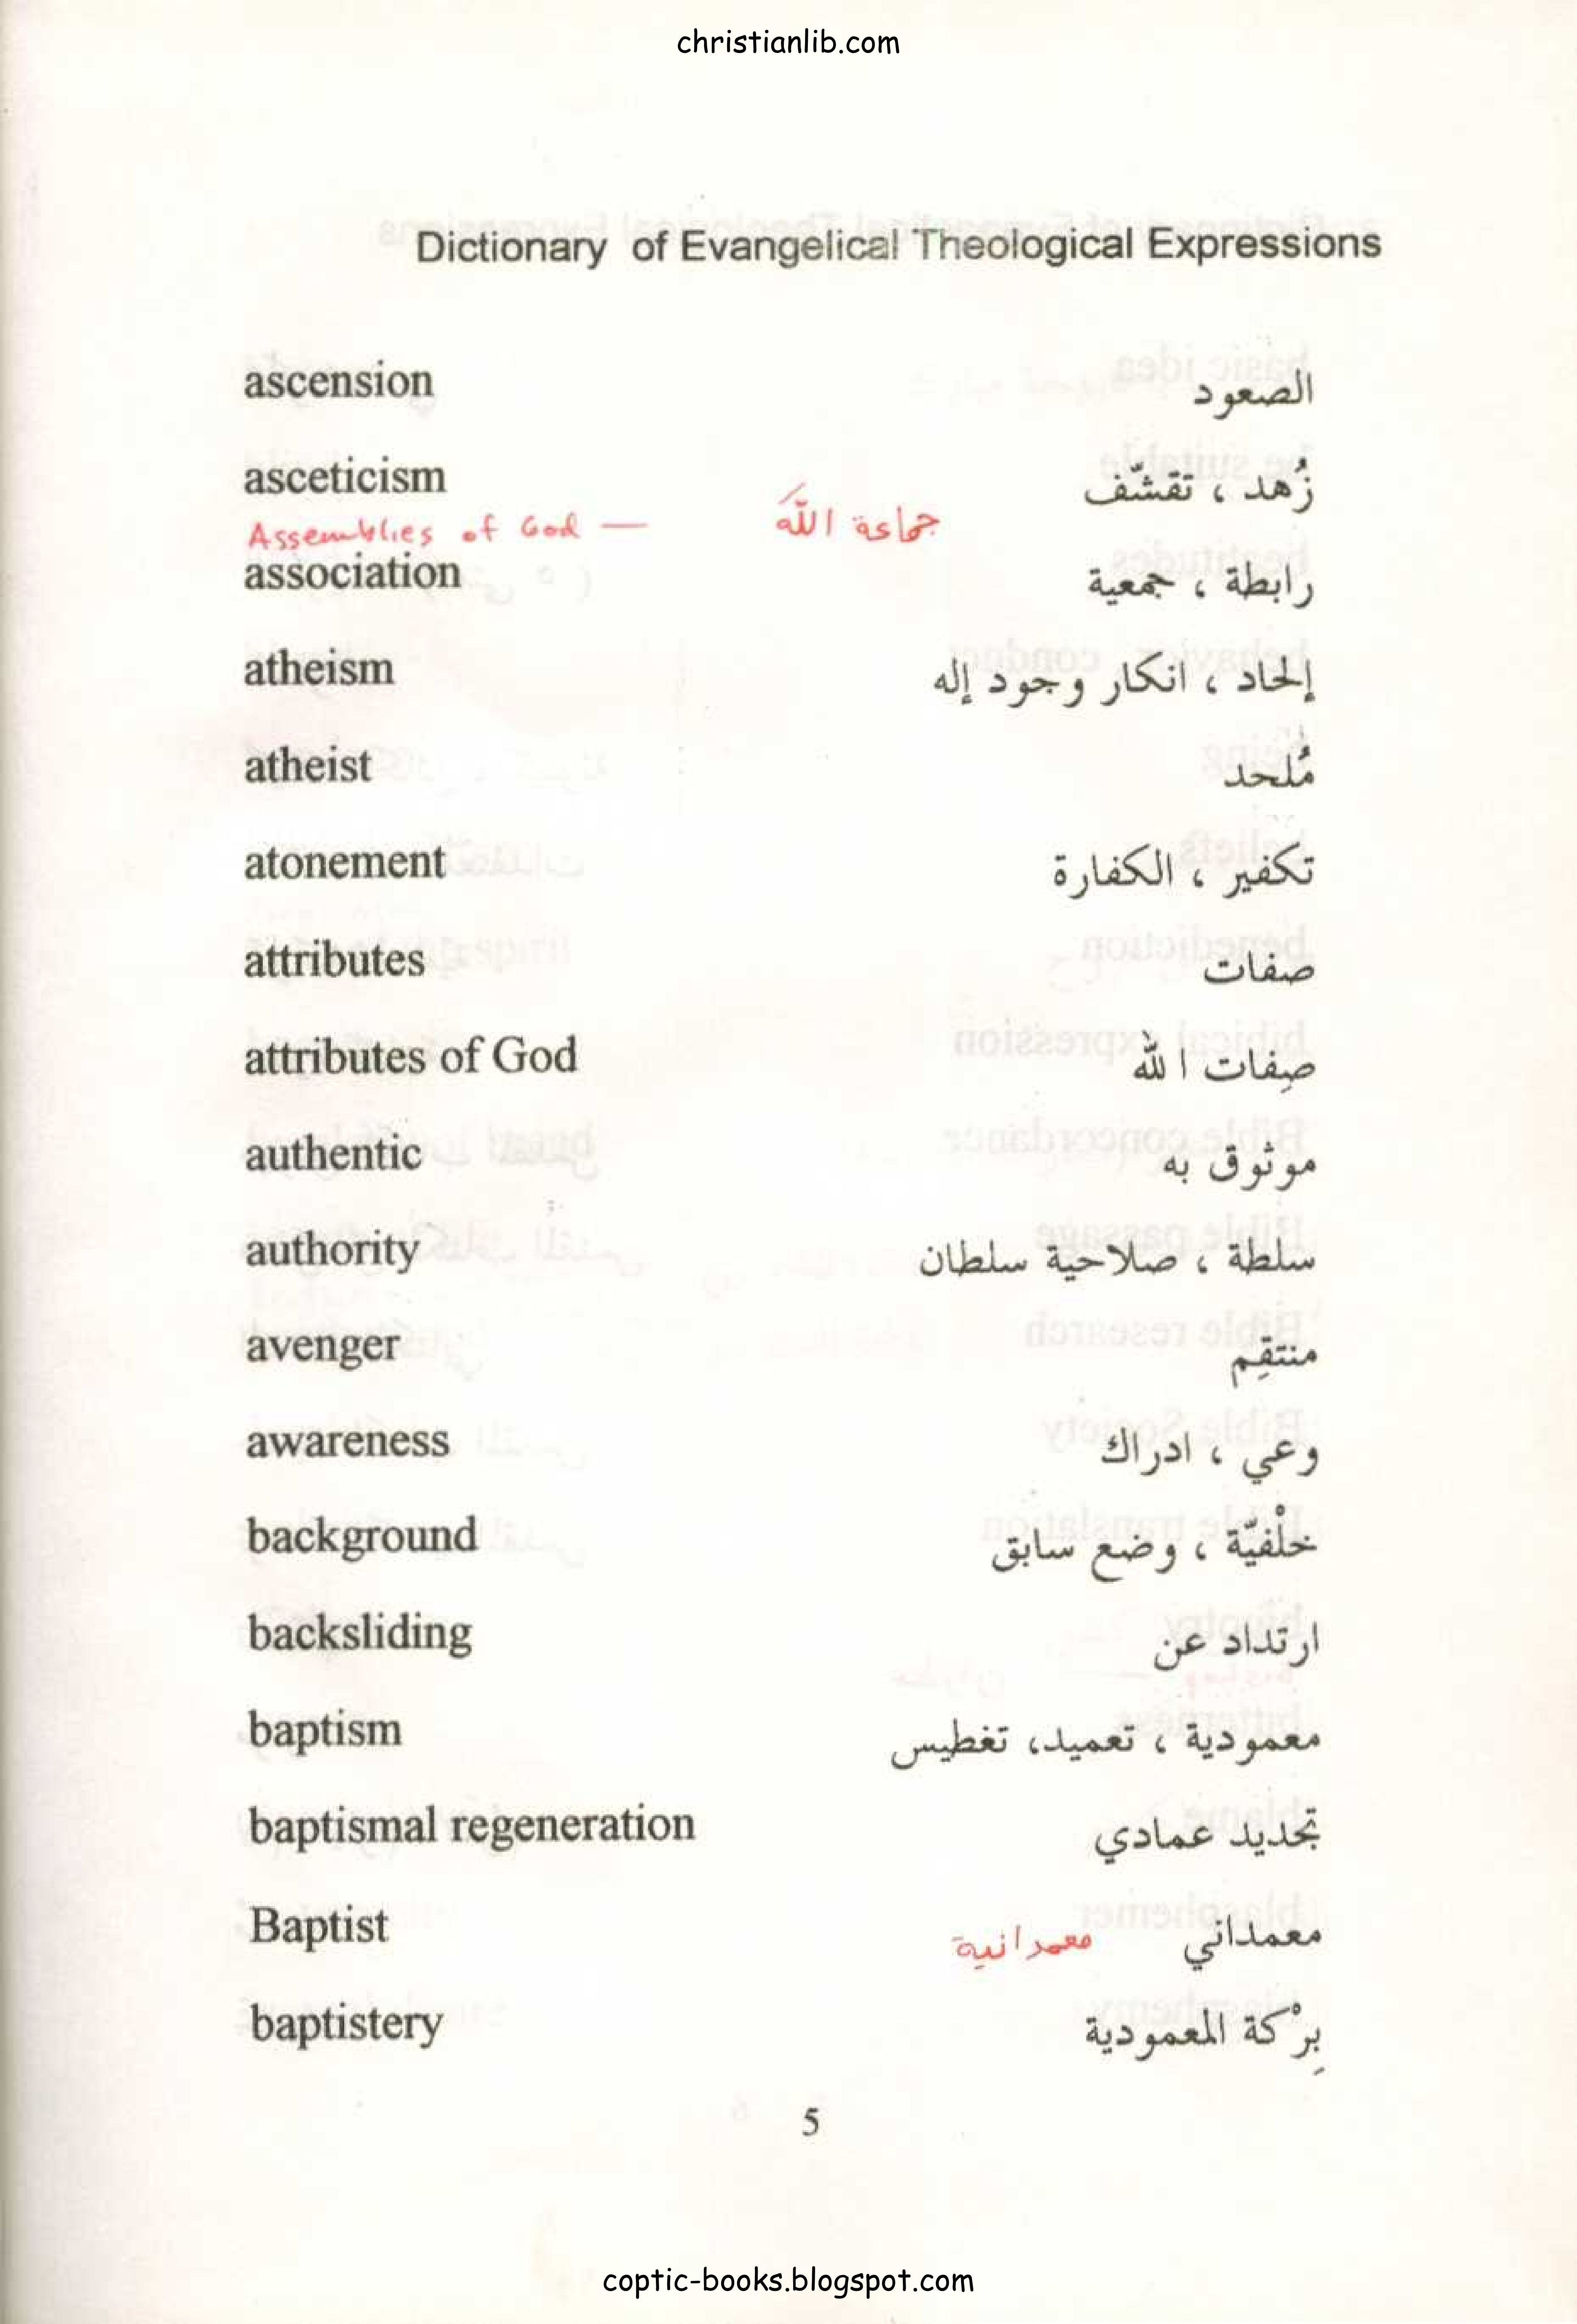 christianlib.com
Dictionary of Evangelical Theological Expressions
ascension الصعود
asceticism زُهد ، تقشّف
Assemblies of God — جماعة الله
association رابطة ، جمعية
atheism إلحاد ، انكار وجود إله
atheist مُلحد
atonement تكفير ، الكفارة
attributes صفات
attributes of God صِفات الله
authentic موثوق به
authority سلطة ، صلاحية سلطان
avenger منتقِم
awareness وعي ، ادراك
background خلْفيّة ، وضع سابق
backsliding ارتداد عن
baptism معمودية ، تعميد، تغطيس
baptismal regeneration تجديد عمادي
Baptist معمداني معمدانية
baptistery بِرْكة المعمودية
5
coptic-books.blogspot.com